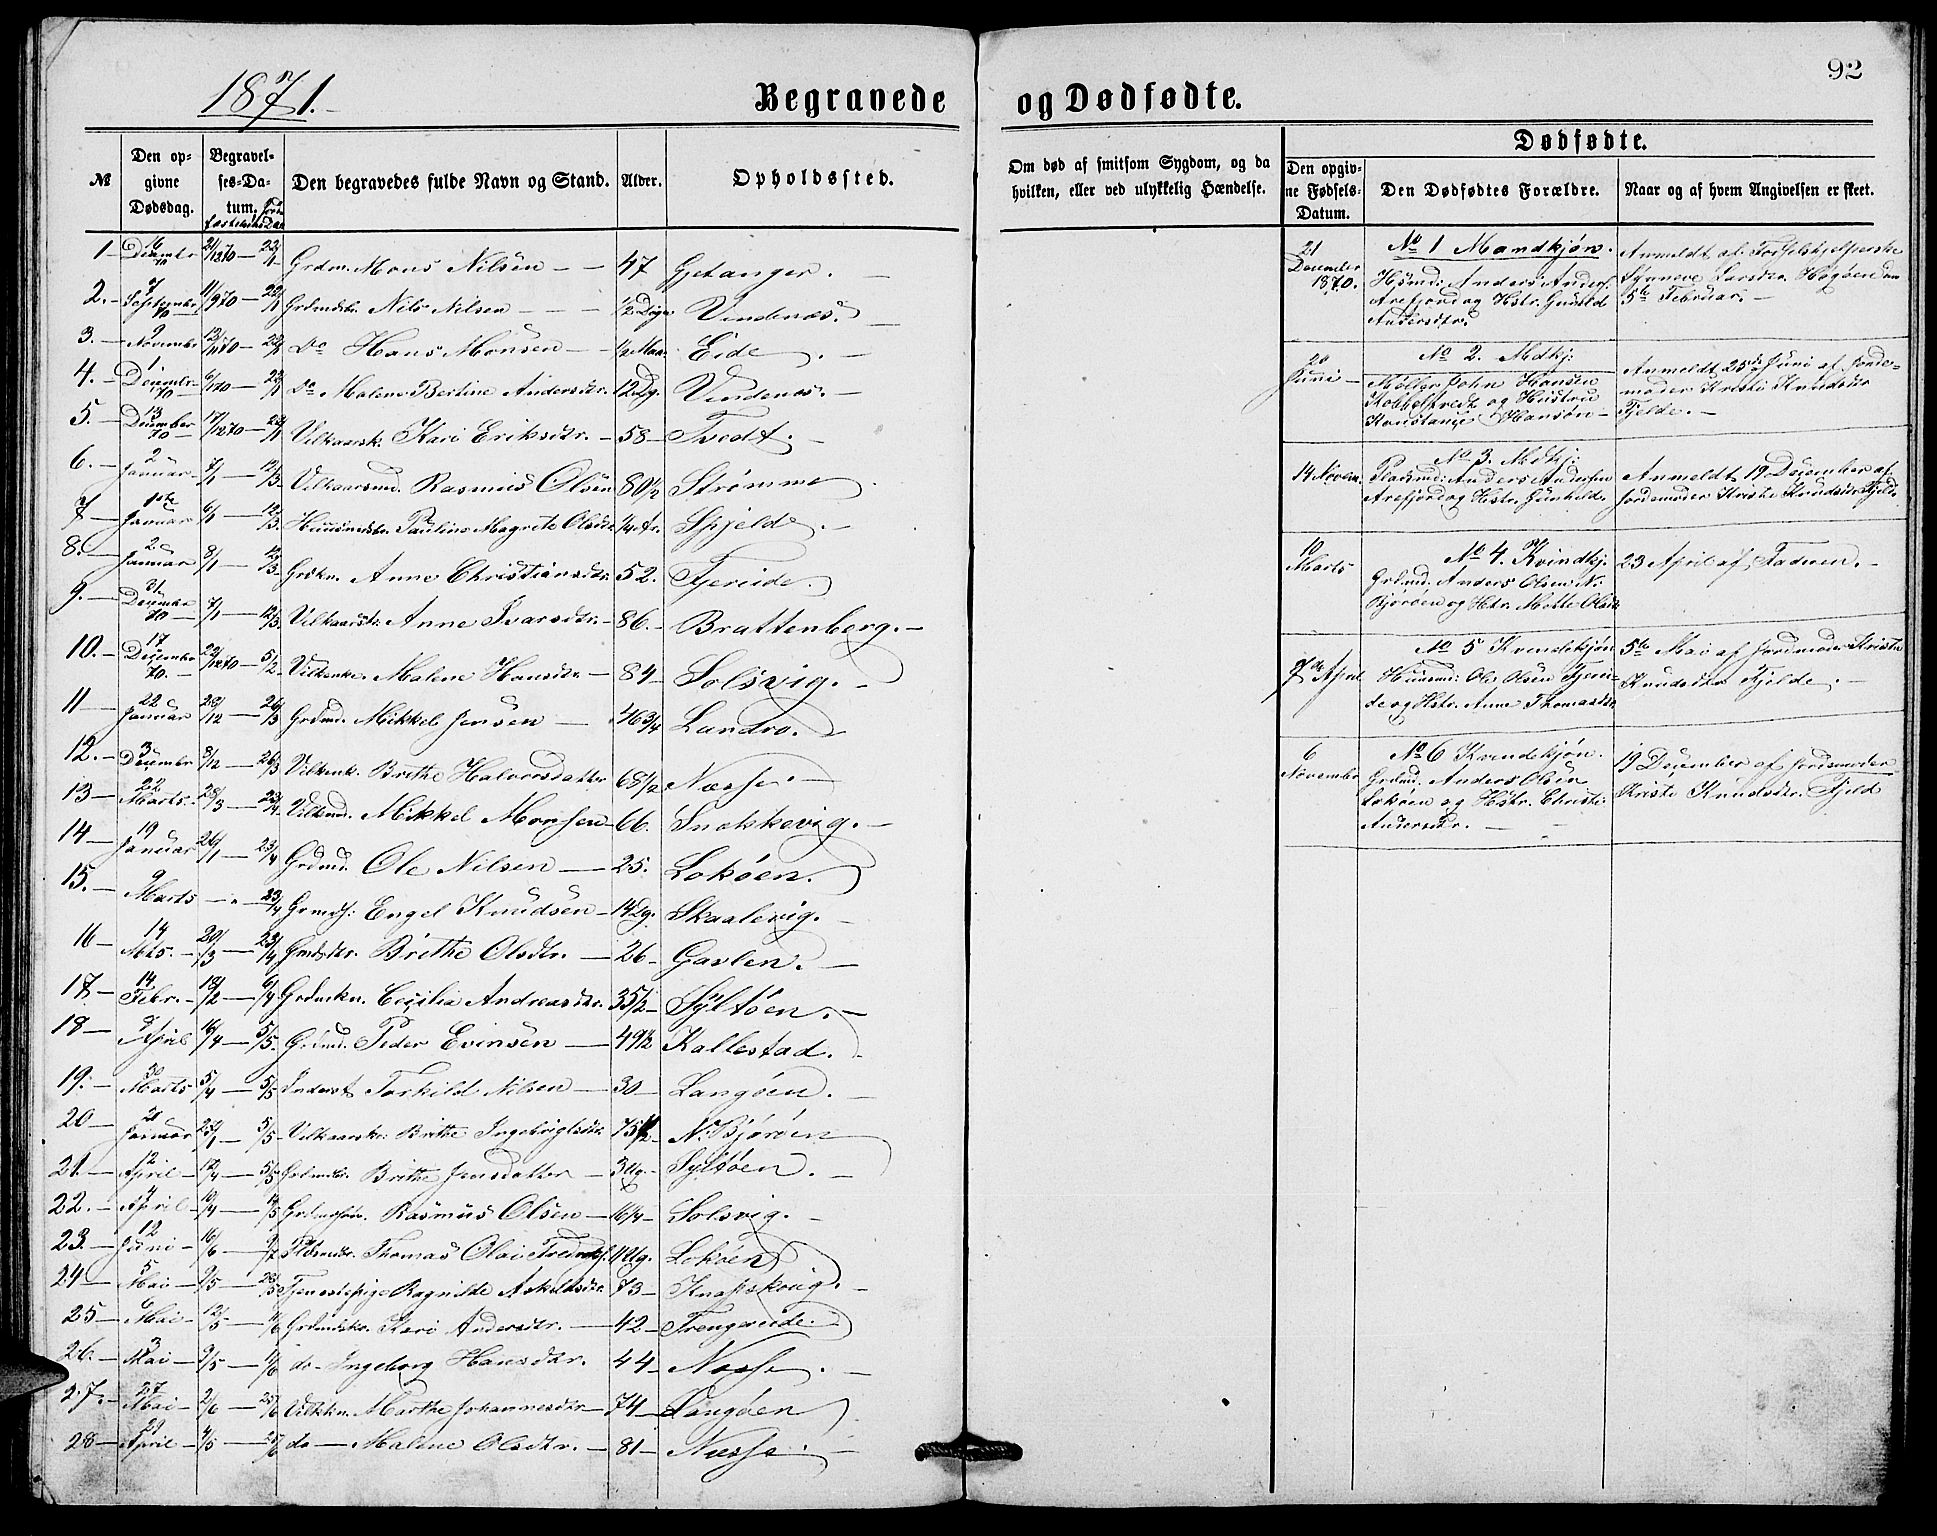 92
1871.
Begravede og Dødfødte.
№ Den opgivne Dødsdag. Begravelses-Datum. Den begravedes fulde Navn og Stand. Alder. Opholdssted.
1 16 December 70 21/12 70 — 22/1 Grdm. Mons Nilsen 47 Gjetanger.
2. 7 September 70 11/9 70 — 22/1 Nils Nilsen 1/2 Døgn Vindenæs.
3. 9 November 13/11 70 — 22/1 Do Hans Monsen 1/2 Maa. Eide.
4. 1 December 70 — 22/1 Do Malene Bertine Andersdtr. 12 Dg. Vindenæs.
5. 13 December 70 17/12 70 — 22/1 Vilkaarsk. Kari Eriksdtr. 58 Tvedt.
6. 2 Januar 7/1 — 12/3 Vilkaarsmd. Rasmus Olsen 80 1/2 Strømme
7 1ste Januar 6/1 — 12/3 Pauline Magrete Olsdtr 1/4 Ar. Spjeld.
8. 2 Januar 8/1 — 12/3 Grdkn. Anne Christiansdtr. 52. Fjereide.
9. 31 December 70 7/1 — 12/3 Anne Ivarsdtr. 86. Brattenberg.
10. 17 December 70. 22/12 70 — 5/2 Malene Hansdtr. 84 Solsvig.
11 22 Januar 28/12 — 26/3 Grdmd. Mikkel Jensen 46 3/4 Landro.
12. 3 December 8/12 — 26/3 Vilkenk. Brithe Halvorsdatter 68 1/2 Næsse
13 22 Marts. 28/3 — 23/4 Vilkmd. Mikkel Monsen 66. Snekkevig.
14 19 Januar 26/1 — 23/4 Grdmd. Ole Nilsen 25. Lokøen.
15. 9 Marts — " — 23/4 Engel Knudsen 14 Dg. Skaalevig.
16 14 Mts. 20/3 — 23/4 Brithe Olsdtr. 26 Gavlen.
17 14 Febr. 18/2 — Cecilia Andreasdtr. 35 1/2 Syltøen.
18 April 16/4 — 5/5 Grdmd. Peder Evinsen 49 1/2 Kallestad.
19. 30 Marts 5/4 — 5/5 Inderst Torkild Nilsen 30 Langøen.
20 21 Januar 25/1 — 5/5 Vilkaarskr. Brithe Ingebrigtsdtr 75 1/2 N. Bjørøen
21. 12 April 17/4 — 5/5 Brithe Jensdatter 3 Ug. Syltøen.
22. 4 April 10/4 — Rasmus Olsen 16 1/4 Solsvig.
23. 12 Juni 16/6 — 9/7 Thomas Olai 4 Ug. Lokøen
24 5 Mai 9/5 — Tjenestepige Ragnilde Askildsdtr 73 Knapskvig.
25 6 Mai 12/5 — Kari Andersdtr. 42 Trengereide.
26. 3 Mai 9/5 — do Ingeborg Hansdtr. 44 Næsse.
27. 27 Mai 2/6 — 25/6 Marthe Johannesdtr 74 Langøen
28 29 April 4/5 — do Malene Olsdtr. 81 Næsse.
Om død af smitsom Sygdom, og da hvilken, eller ved ulykkelig Hændelse.
Dødfødte.
Den opgivne Fødsels-Datum. Den Dødfødtes Forældre. Naar og af hvem Angivelsen er skeet.
21 December 1870. No 1 Mandkjøn.
Husmd: Anders Anders.
Arefjord og Hstr. Gunild
Andersdtr.
Anmeldt af Fødselshjelperske
Synneve Larsdtr. Høgøen den
5te Februar.
20 Juni No 2. Mdkj:
Møller John Hansen
Kobbeltvedt og Hustru
Konstance Hansen
Anmeldt 25de Juni af Jorde-
moder Kristi Knudsdtr
Fjelde.
14 Novem. No 3. Mdkj:
Pladsmd: Anders Andersen
Arefjord og Hstr. Gunhild.
Anmeldt 19 December af
Jordemoder Kristi Knudsdtr Fjeld.
10 Marts No 4. Kvindkj.
Grdmd. Anders Olsen N.
Bjørøen og Hstr. Mette Olsdtr
23 April af Faderen.
April No 5 Kvindekjøn
Husmd: Ole Olsen Fjerei-
de og Hstr. Anne Thomasdtr
5te Mai af Jordmoder Kristi
Knudsdtr Fjelde.
6 November No 6 Kvindekjøn.
Grdmd. Anders Olsen
Lokøen og Hstr. Christi
Andersdtr.
19 December af Jordemoder
Kristi Knudsdtr. Fjeld